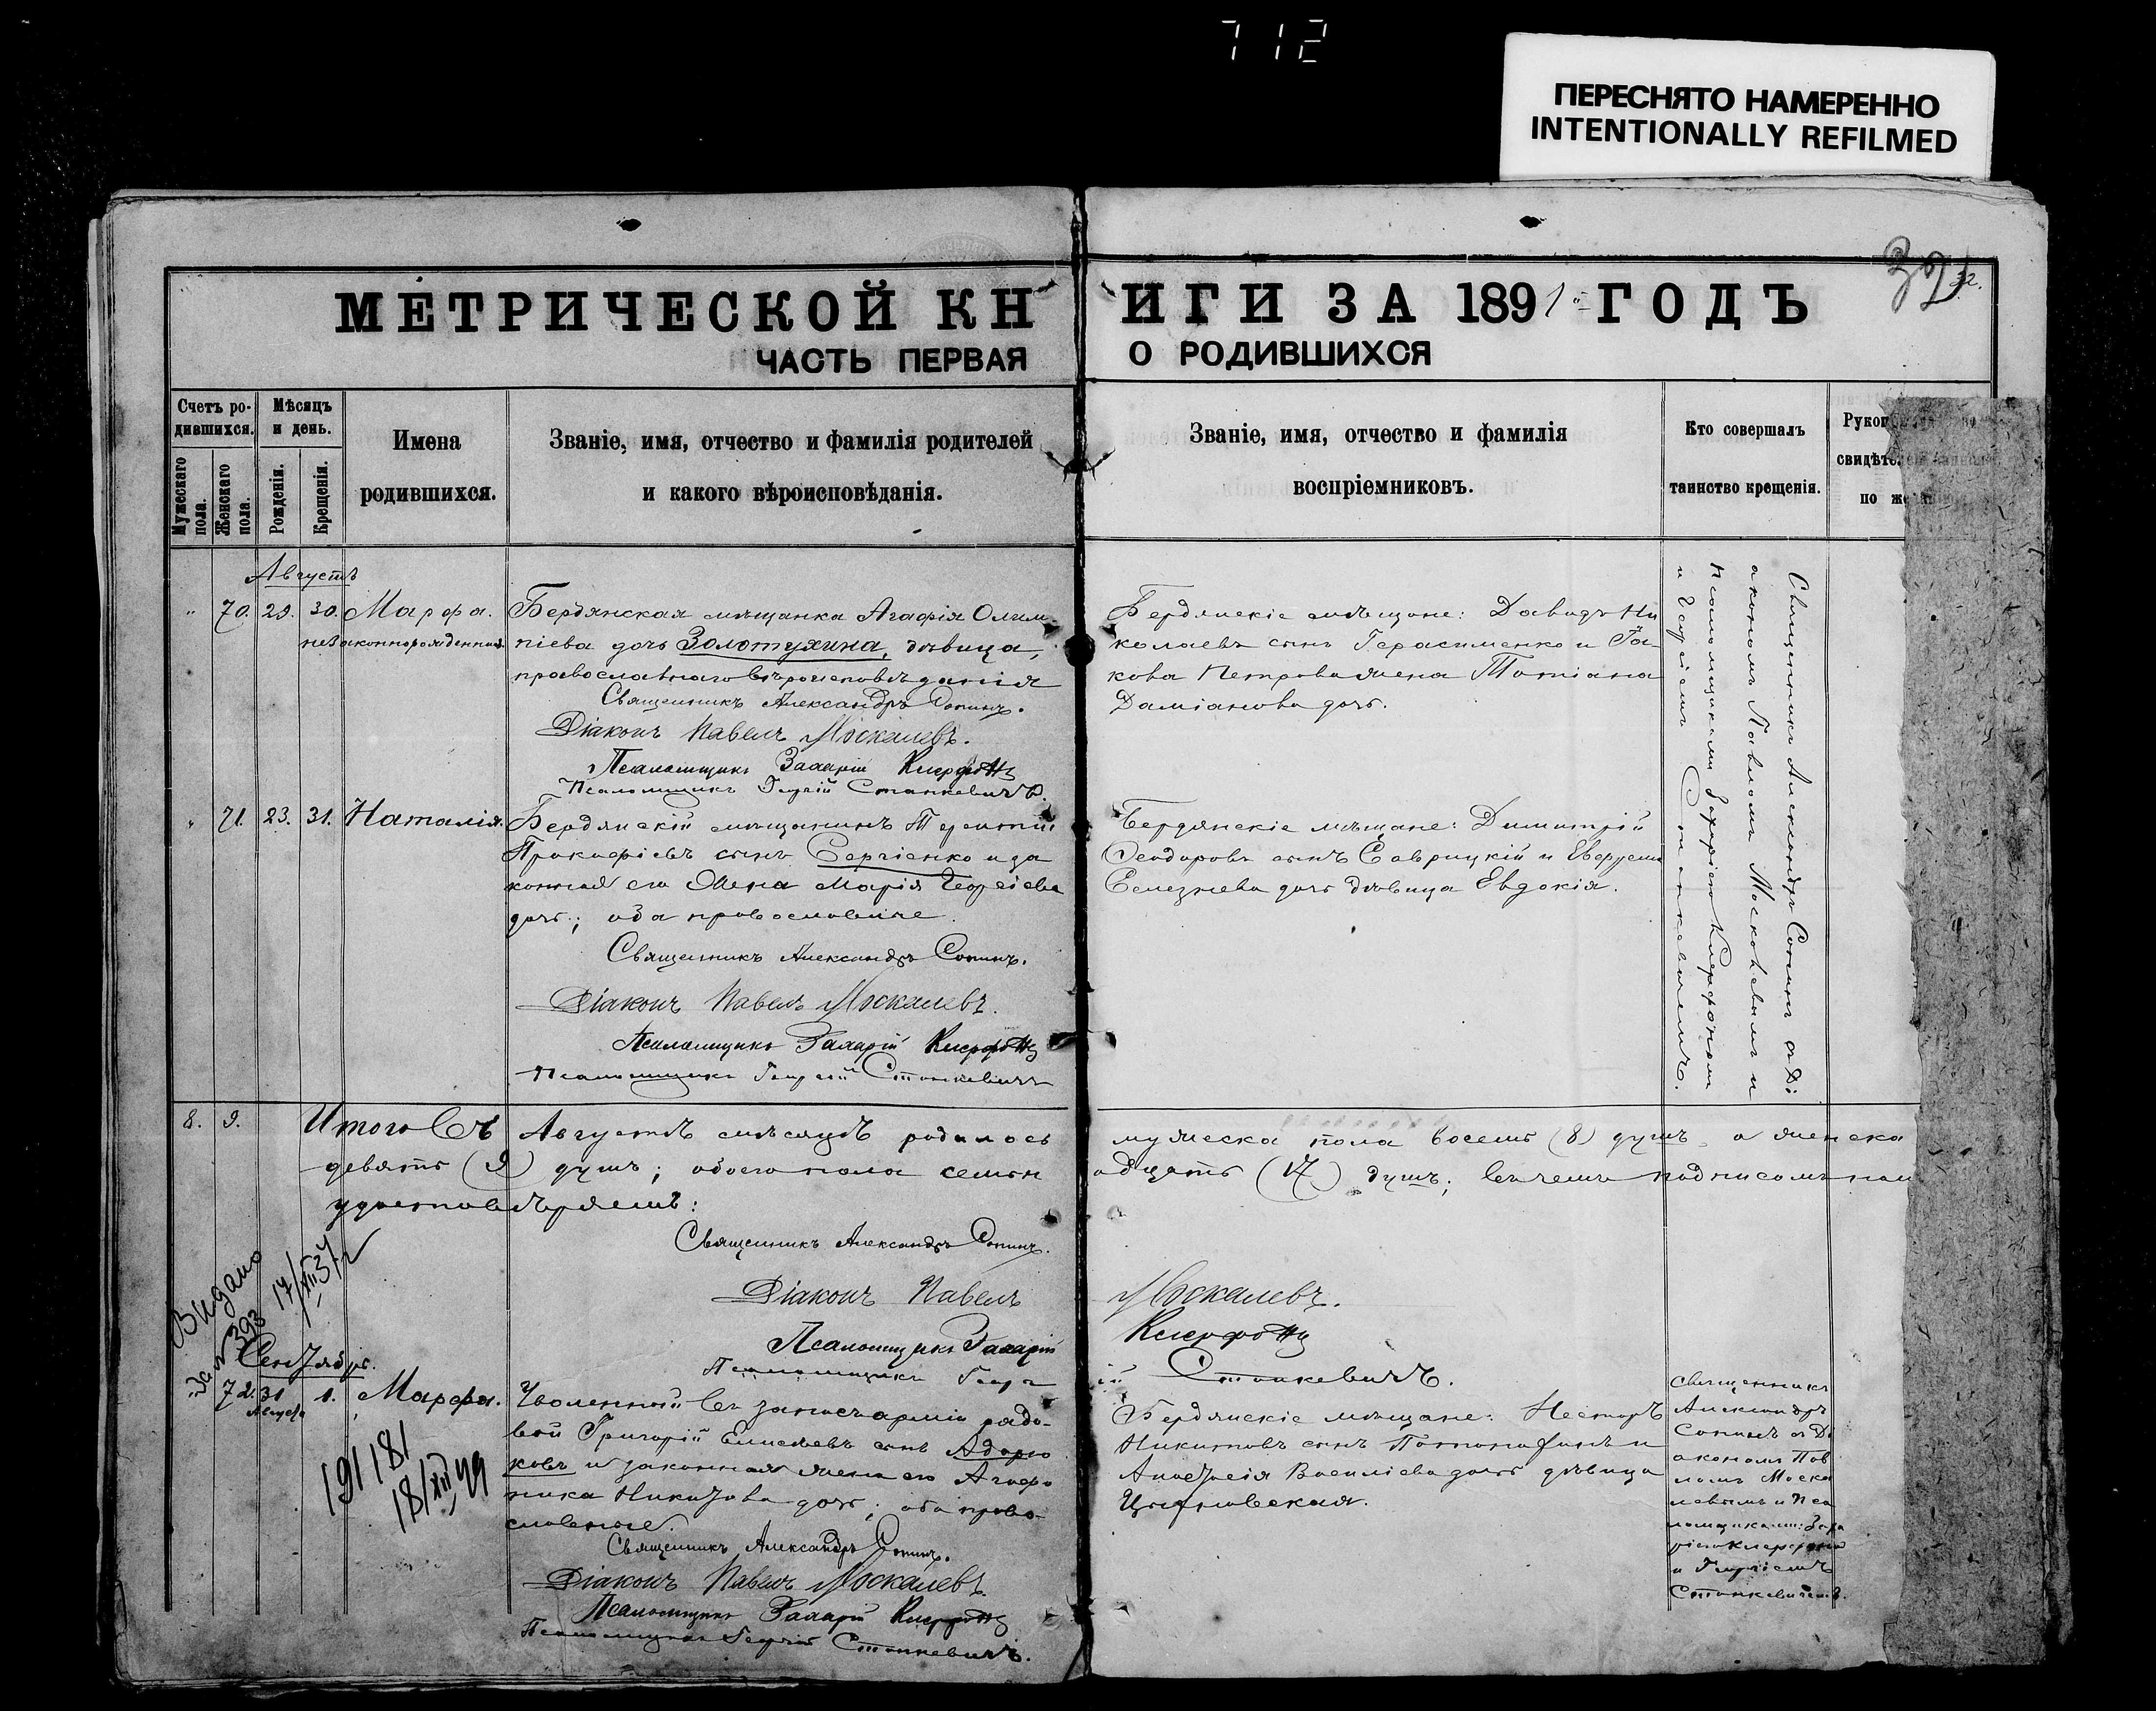 712
ПЕРЕСНЯТО НАМЕРЕННО
INTENTIONALLY REFILMED
32.
МЕТРИЧЕСКОЙ КН ИГИ ЗА 1891 ГОДЪ
ЧАСТЬ ПЕРВАЯ О РОДИВШИХСЯ
Счетъ ро-
дившихся.
Мужескаго пола.
Женскаго пола.
Мѣсяцъ
и день.
Рожденія.
Крещенія.
Имена
родившихся.
Званіе, имя, отчество и фамилія родителей
и какого вѣроисповѣданія.
Званіе, имя, отчество и фамилія
воспріемниковъ.
Кто совершалъ
таинство крещенія.
Рукоп
свидѣте
по же
Августъ
" 70. 29. 30. Марѳа.
незаконнорожденная
Бердянская мѣщанка Агафія Олим-
піева дочь Золотухина, дѣвица,
православнаго вѣроисповѣданія
Священникъ Александръ Сопинъ.
Діаконъ Павелъ Москалевъ.
Псаломщикъ Захарій
Псаломщикъ Георгій Станкевичъ.
Бердянскіе мѣщане: Давидъ Ни
колаевъ сынъ Герасименко и Іа-
кова Петрова жена Татіана
Даміанова дочь.
Священникъ Александръ Сопинъ съ Ді
акономъ Павломъ Москалевымъ и
псаломщиками Захаріею
и Георгіемъ Станкевичемъ.
" 71. 23. 31. Наталія.
Бердянскій мѣщанинъ Терентій
Прокофіевъ сынъ Сергіенко и за
конная его жена Марія Георгіева
дочь; оба православные.
Священникъ Александръ Сопинъ.
Діаконъ Павелъ Москалевъ.
Псаломщикъ Захарій
Псаломщикъ Георгій Станкевичъ
Бердянскіе мѣщане: Димитрій
Ѳеодоровъ сынъ Саврицкій и
дочь дѣвица Евдокія.
8. 9. Итого въ Августѣ мѣсяцѣ родилось мужеска пола восемь (8) душъ, а женска
девять (9) душъ; обоего пола семьн адцать (17) душъ; въ чемъ подписомъ наш
удостовѣряемъ:
Священникъ Александръ Сопинъ.
Діаконъ Павелъ Москалевъ.
Псаломщикъ Захарій
Псаломщикъ Георг ій Станкевичъ.
Видано
393
17/XII 34
Сентябрь.
72. 31 Августа 1. Марѳа.
191181
18/XII 49
Уволенный въ запасъ арміи рядо-
вой Григорій Елисѣевъ сынъ Адарю
ковъ и законная жена его Агафо
ника Никитова дочь; оба право-
славные.
Священникъ Александръ Сопинъ.
Діаконъ Павелъ Москалевъ
Псаломщикъ Захарій
Псаломщикъ Георгій Станкевичъ.
Бердянскіе мѣщане: Несторъ
Никитовъ сынъ и
Анастасія Василіева дочь дѣвица
Священникъ
Александръ
Сопинъ съ Ді
акономъ Пав
ломъ Моска
левымъ и Пса
ломщиками: Заха
и Георгіемъ
Станкевичемъ.